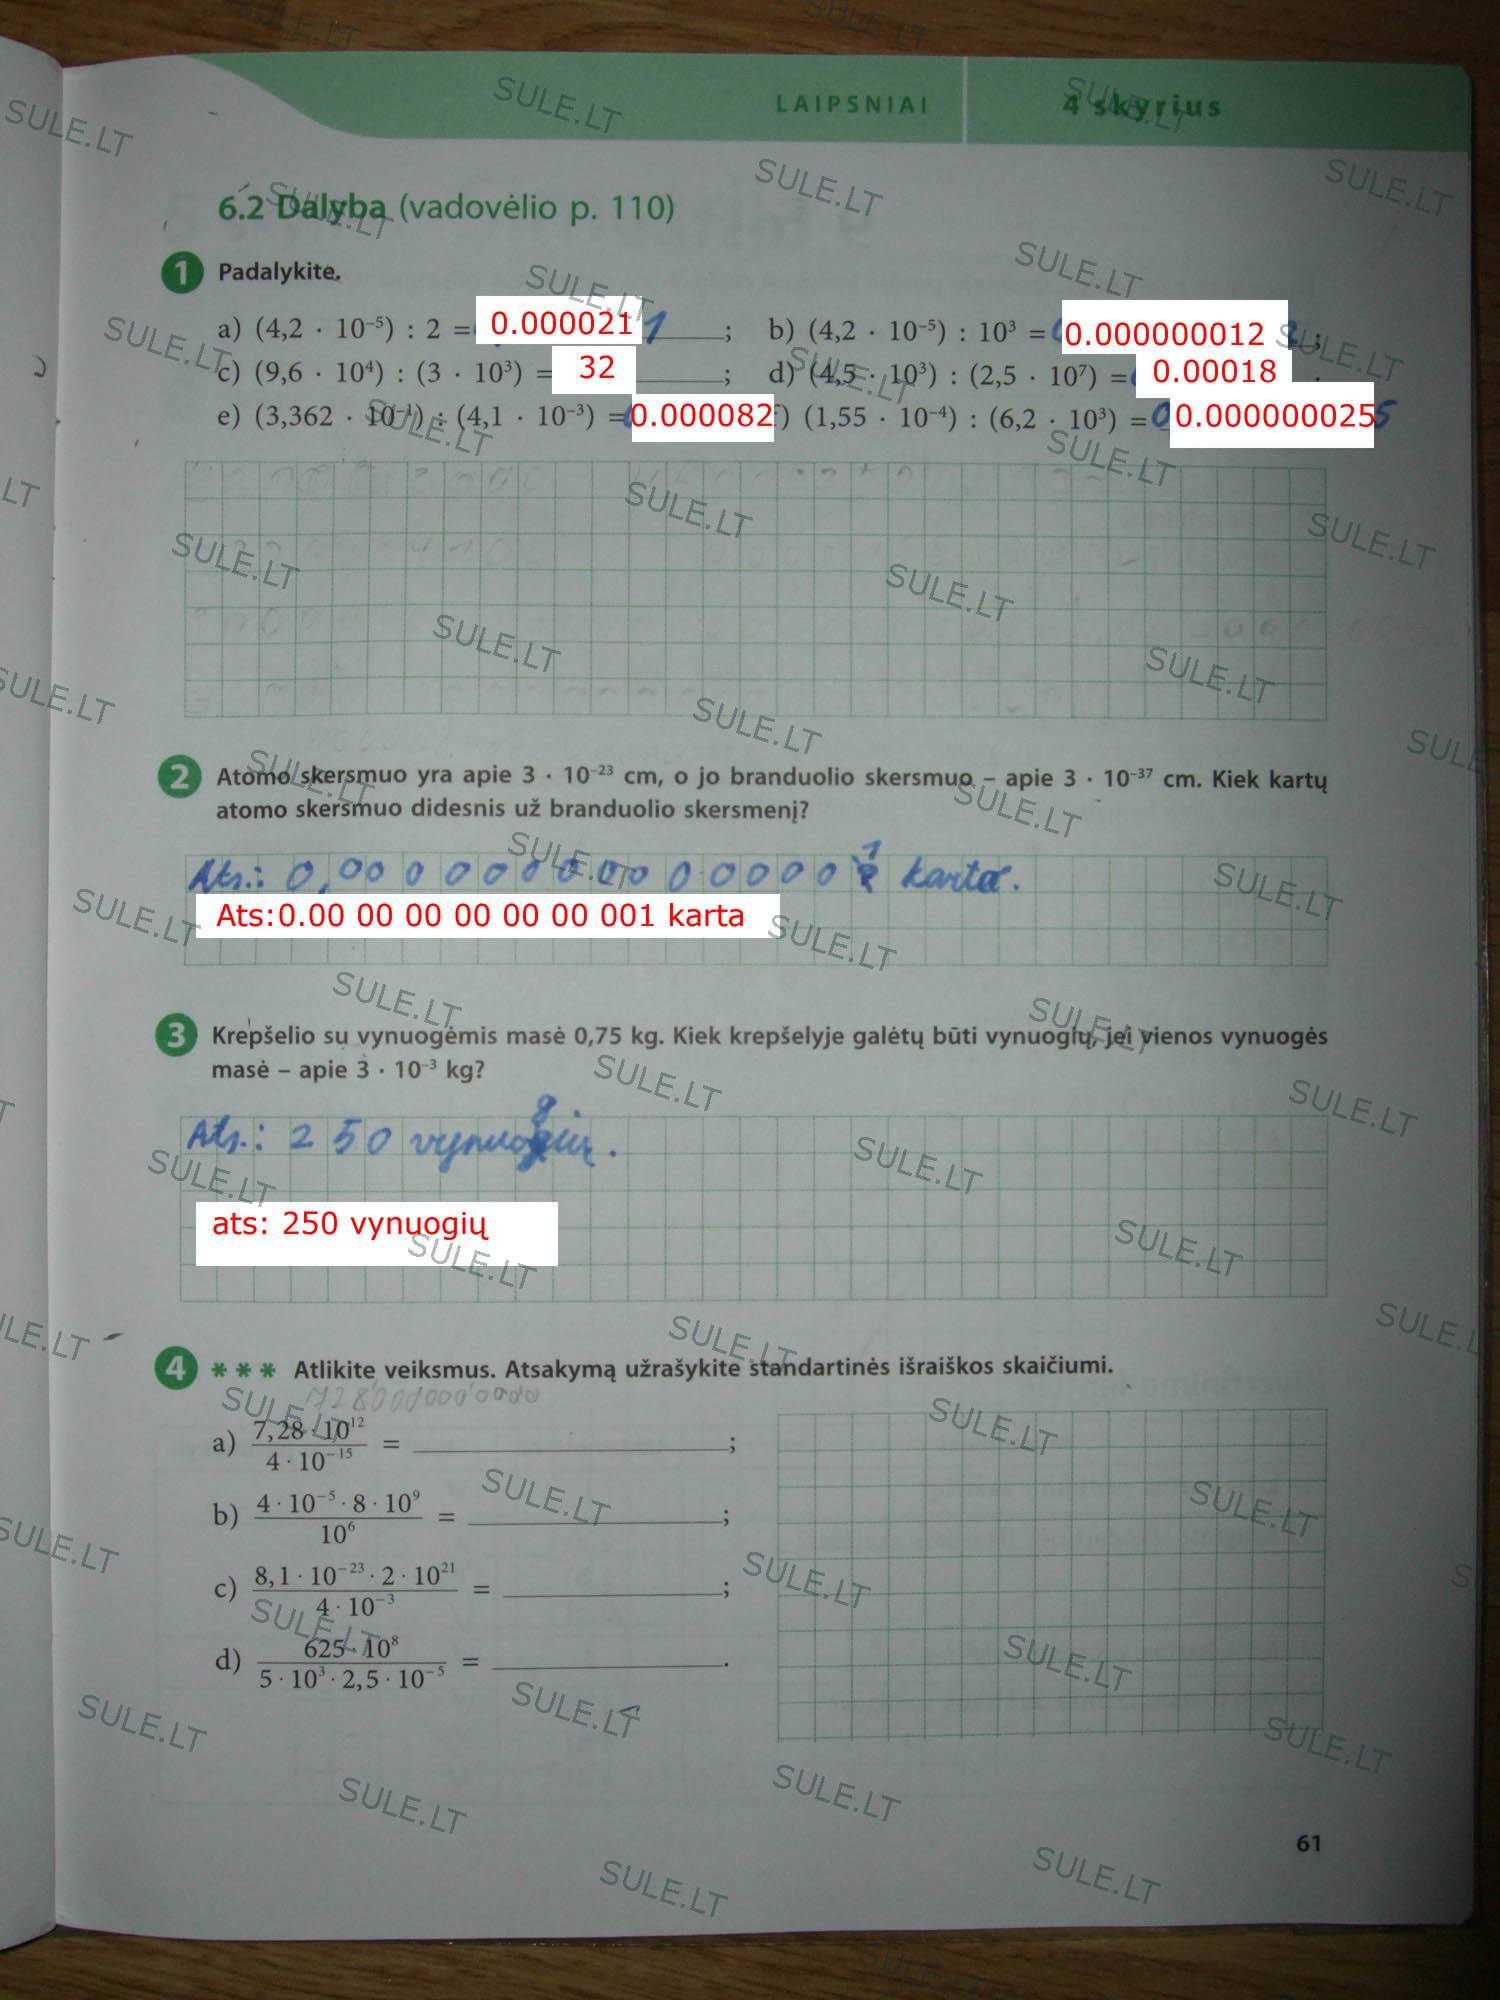 LAIPSNIAI 4 skyrius
6.2 Dalyba (vadovėlio p. 110)
1 Padalykite.
a) (4,2 · 10⁻⁵) : 2 = 0.000021 1 ; b) (4,2 · 10⁻⁵) : 10³ = 0.000000012 ;
c) (9,6 · 10⁴) : (3 · 10³) = 32 ; d) (4,5 · 10³) : (2,5 · 10⁷) = 0.00018
e) (3,362 · 10⁻¹) : (4,1 · 10⁻³) = 0.000082 ) (1,55 · 10⁻⁴) : (6,2 · 10³) = 0 0.000000025 5
2 Atomo skersmuo yra apie 3 · 10⁻²³ cm, o jo branduolio skersmuo – apie 3 · 10⁻³⁷ cm. Kiek kartų
atomo skersmuo didesnis už branduolio skersmenį?
Ats.: 0,00000000000001 karta.
Ats:0.00 00 00 00 00 00 001 karta
3 Krepšelio su vynuogėmis masė 0,75 kg. Kiek krepšelyje galėtų būti vynuogių, jei vienos vynuogės
masė – apie 3 · 10⁻³ kg?
Ats.: 250 vynuogių.
ats: 250 vynuogių
4 * * * Atlikite veiksmus. Atsakymą užrašykite standartinės išraiškos skaičiumi.
a) 7,28 · 10¹² / 4 · 10⁻¹⁵ = ;
b) 4 · 10⁻⁵ · 8 · 10⁹ / 10⁶ = ;
c) 8,1 · 10⁻²³ · 2 · 10²¹ / 4 · 10⁻³ = ;
d) 625 · 10⁸ / 5 · 10³ · 2,5 · 10⁻⁵ = .
61
SULE.LT